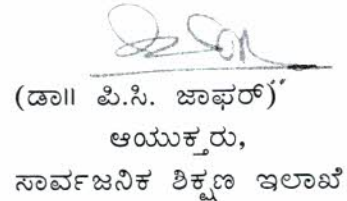 (ಡಾ॥ ಪಿ.ಸಿ. ಜಾಫರ್)
ಆಯುಕ್ತರು,
ಸಾರ್ವಜನಿಕ ಶಿಕ್ಷಣ ಇಲಾಖೆ